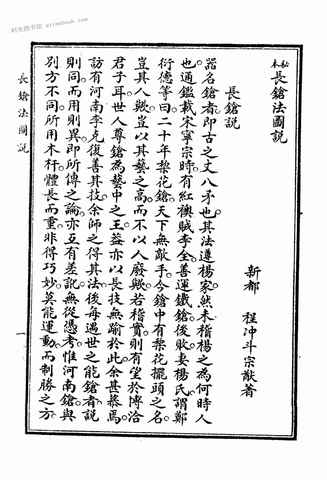 秘本長鎗法圖說
新都 程冲斗宗猷著
長鎗說
器名鎗者即古之丈八矛也其法遵楊家然未稽楊之為何時人
也通鑑載宋寧宗時有紅襖賊李全善運鐵鎗後敗妻楊氏謂鄭
衍德等曰二十年梨花鎗天下無敵手今鎗中有梨花擺頭之名
豈其人歟豈以其藝之高而不以人廢歟若稽實則有望於博洽
君子耳世人尊鎗為藝中之王益亦以長技無踰於此余甚慕焉
訪有河南李克復善其技余師之得其法後每遇世之能鎗者說
則同而用則異即所傳之論亦互有差訛無從憑考惟河南鎗與
別方不同所用木杆體長而重非得巧妙莫能運動而制勝之方
長鎗法圖說
一